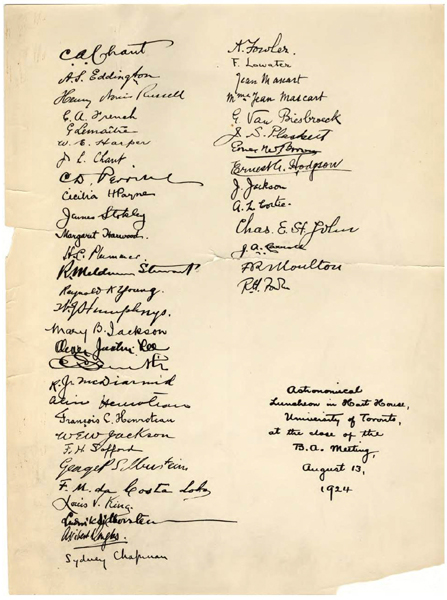 C.A. Chant
A.S. Eddington
Henry Norris Russell
C. A. French
G Lemaître
W. E. Harper
J E. Chant
C.D. Perrine
Cecilia H Payne
James Stokley
Margaret Harwood.
H.C. Plummer
R Meldrum Stewart
Reynold K Young.
W.J. Humphreys.
Mary B. Jackson
Oliver Justin Lee
R.J. McDiarmid
Henroteau
François C. Henroteau
W E W Jackson
F. H Safford
F. M. da Costa Lobo
Louis V. King.
Sydney Chapman
A. Fowler.
F. Lowater
Jean Mascart
Mme Jean Mascart
G. Van Biesbroeck
J. S. Plaskett
Ernest W Brown
Ernest A. Hodgson
J. Jackson
A. L Cortie.
Chas. E. St. John
F R Moulton
R.H. Fowler
Astronomical
Luncheon in Hart House,
University of Toronto,
at the close of the
B.A. Meeting
August 13,
1924